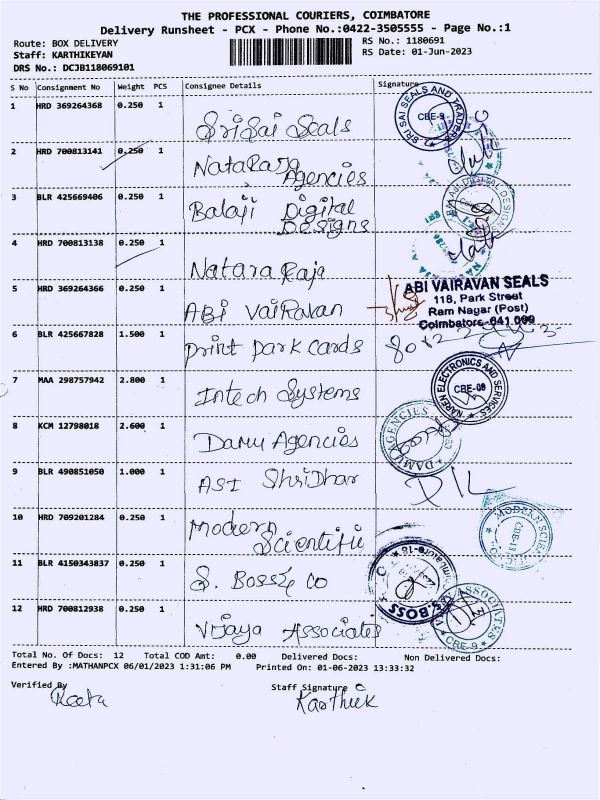 THE PROFESSIONAL COURIERS, COIMBATORE
Delivery Runsheet - PCX - Phone No.:0422-3505555 - Page No.:1
Route: BOX DELIVERY RS No.: 1180691
Staff: KARTHIKEYAN RS Date: 01-Jun-2023
DRS No.: DCJB118069101
S No Consignment No Weight PCS Consignee Details Signature
1 HRD 369264368 0.250 1 Sri Sai Seals
SRI SAI SEALS AND TRADERS CBE-9
2 HRD 700813141 0.250 1 Nataraja
Agencies
3 BLR 425669406 0.250 1 Balaji Digital
Designs
4 HRD 700813138 0.250 1 Nataraja
5 HRD 369264366 0.250 1 ABI Vairavan
ABI VAIRAVAN SEALS
118, Park Street
Ram Nagar (Post)
Coimbatore-641 009
6 BLR 425667828 1.500 1 Print Park Cards
7 MAA 298757942 2.800 1 Intech Systems
NAREN ELECTRONICS AND SERVICES CBE-09
8 KCM 12798018 2.600 1 Damu Agencies
DAMU AGENCIES
9 BLR 490851050 1.000 1 ASI Shridhar
10 HRD 709201284 0.250 1 Modern
Scientific
MODERN SCIEN
11 BLR 4150343837 0.250 1 S. Boss & Co
S.BOSS
12 HRD 700812938 0.250 1 Vijaya Associates
ASSOCIATES CBE-9
Total No. Of Docs: 12 Total COD Amt: 0.00 Delivered Docs: Non Delivered Docs:
Entered By :MATHANPCX 06/01/2023 1:31:06 PM Printed On: 01-06-2023 13:33:32
Verified By Staff Signature
Reeta Karthick